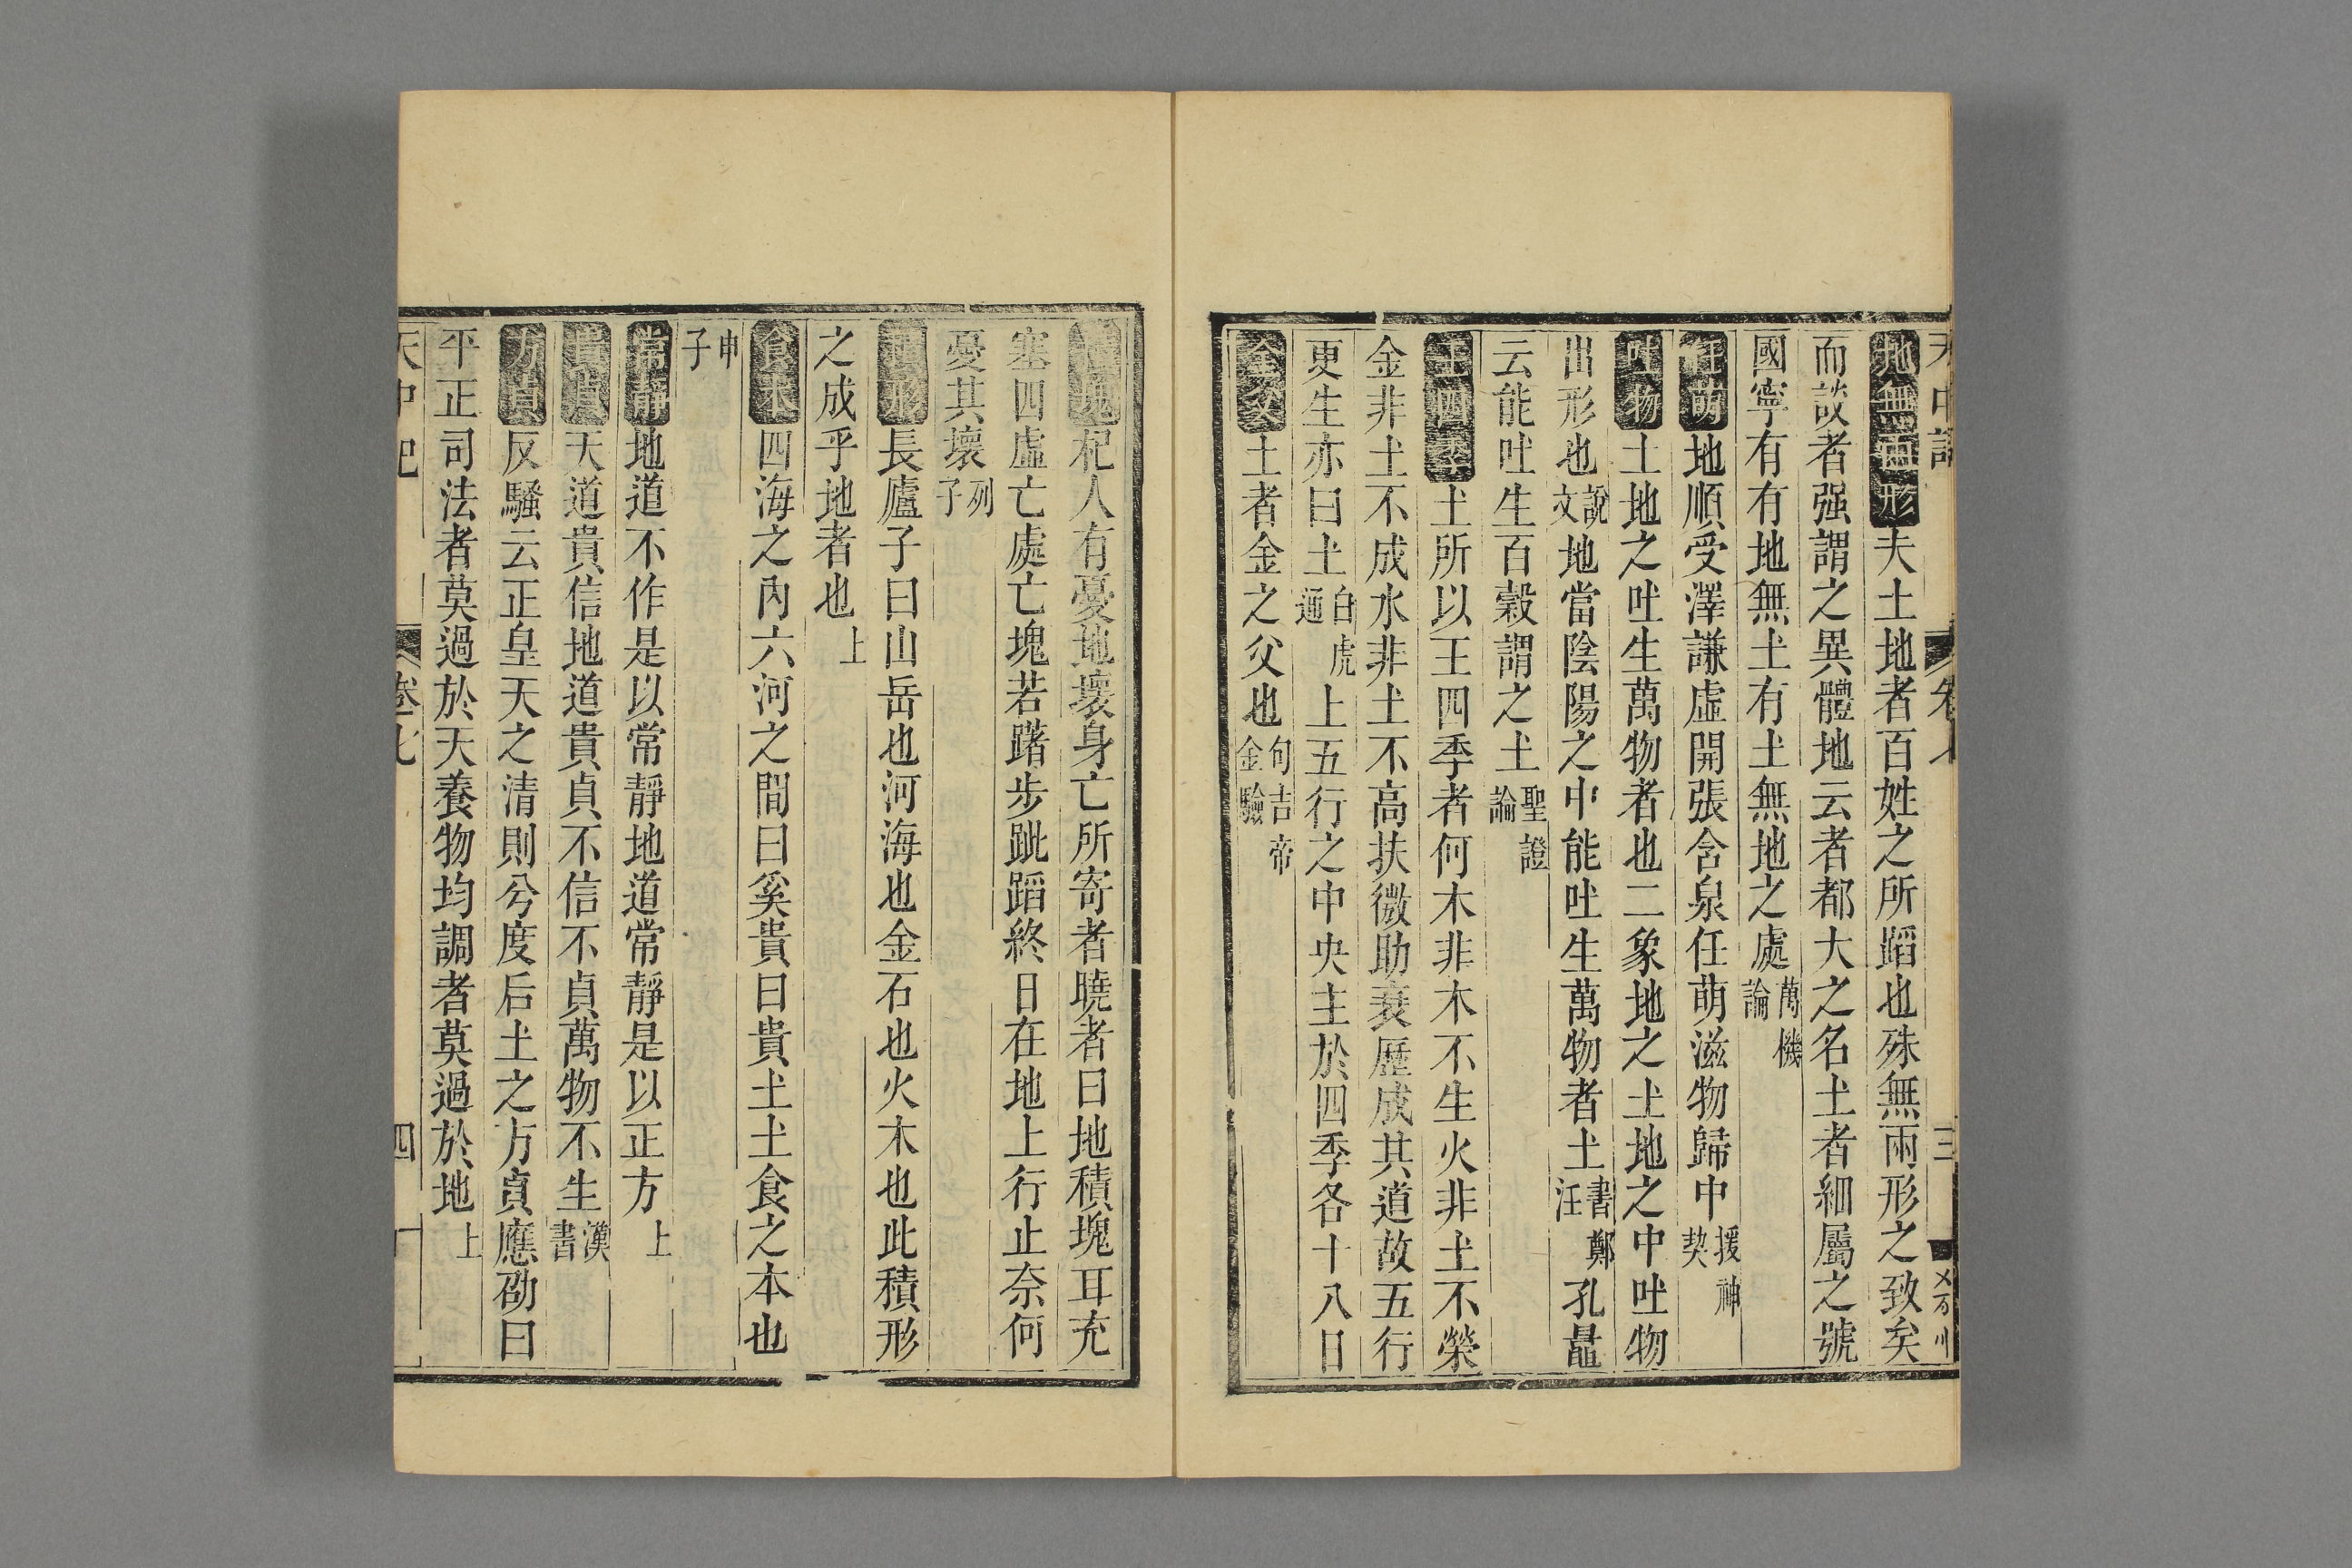 地無兩形夫土地者百姓之所蹈也殊無兩形之致矣
而談者强謂之異體地云者都大之名土者細屬之號
國寧有有地無土有土無地之處萬機論
任萌地順受澤謙虛開張含泉任萌滋物歸中援神契
吐物土地之吐生萬物者也二象地之土地之中吐物
出形也說文地當陰陽之中能吐生萬物者土書鄭注孔鼂
云能吐生百穀謂之土聖證論
王四季土所以王四季者何木非木不生火非土不榮
金非土不成水非土不高扶微助衰歷成其道故五行
更生亦曰土白虎通上五行之中央主於四季各十八日
金父土者金之父也旬吉帝金驗
積塊杞人有憂地壞身亡所寄者曉者曰地積塊耳充
塞四虛亡處亡塊若躇步跐蹈終日在地上行止奈何
憂其壞列子
積形長廬子曰山岳也河海也金石也火木也此積形
之成乎地者也上
食本四海之內六河之間曰奚貴曰貴土土食之本也
申子
常靜地道不作是以常靜地道常靜是以正方上
貴貞天道貴信地道貴貞不信不貞萬物不生漢書
方貞反騷云正皇天之清則兮度后土之方貞應劭曰
平正司法者莫過於天養物均調者莫過於地上
天中記 卷七 四